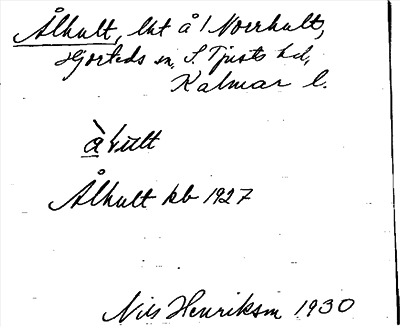 Ålhult, lht å / Norrhult,
Hjorteds sn, S. Tjusts hd,
Kalmar l.
Ålhult kb 1927
Nils Henriksson 1930